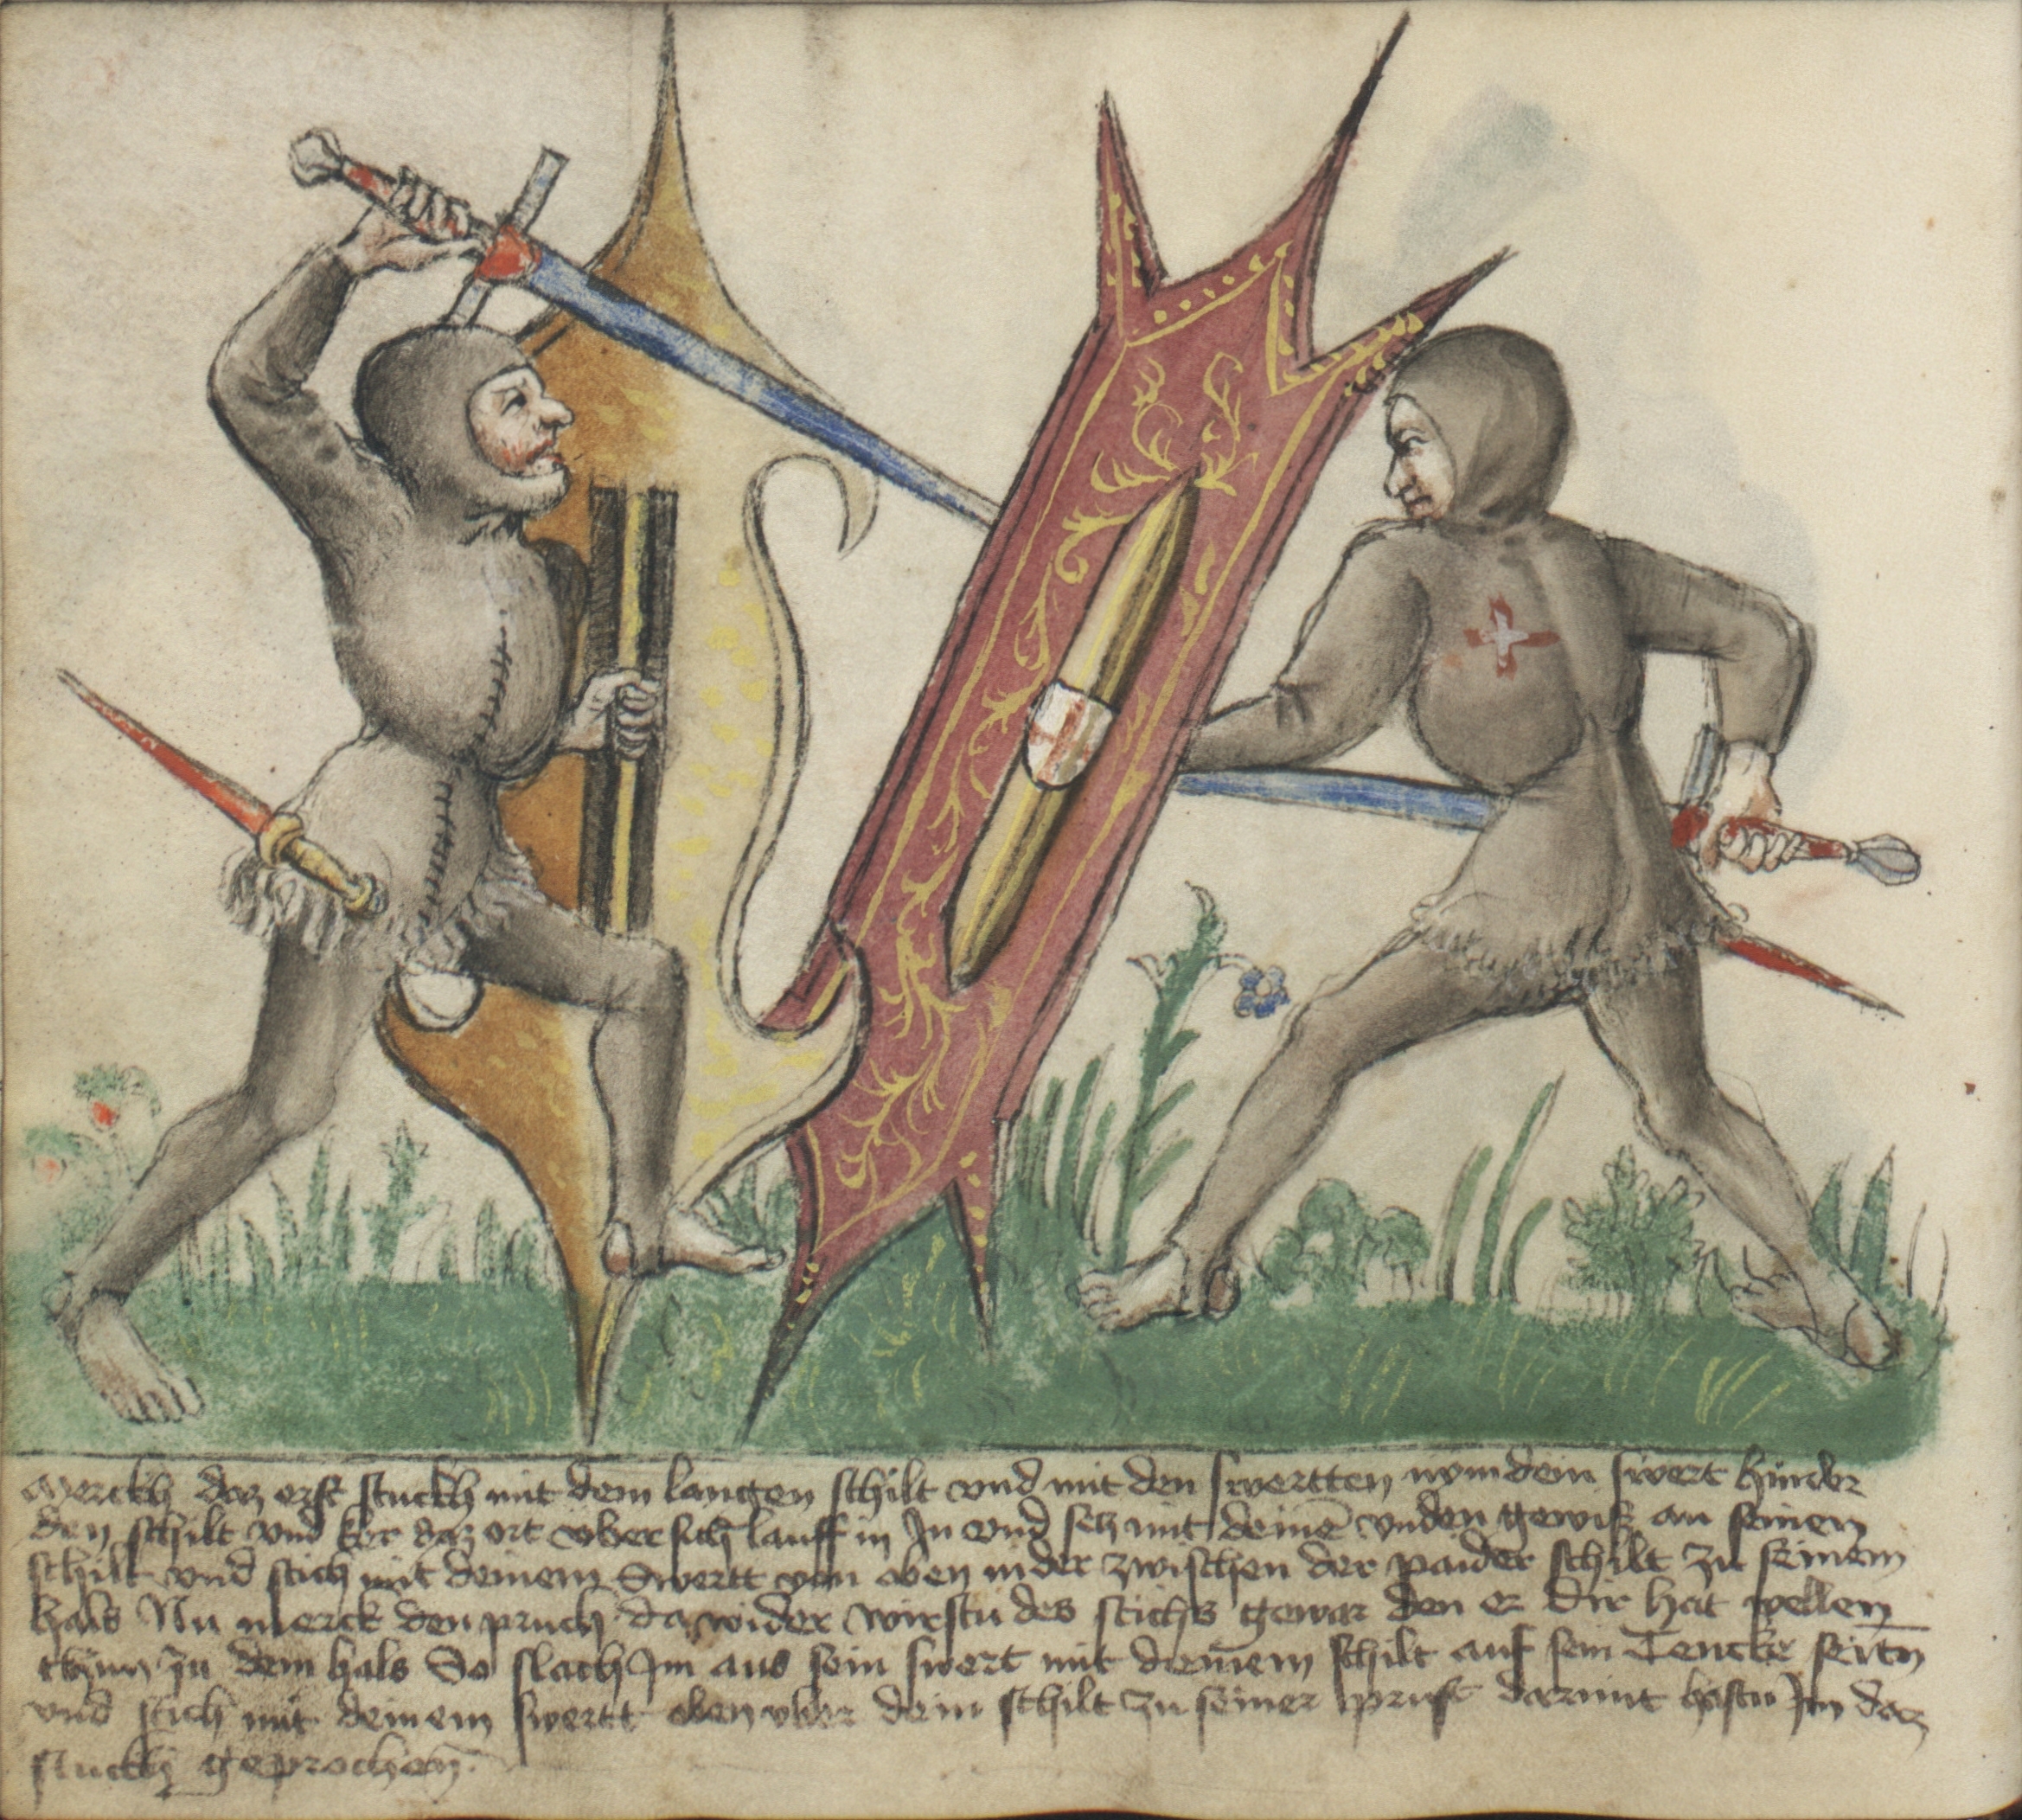 Merckh daz erst stuckh mit dem langen schilt vnd mit den swertten nym dein swert hinder
den schilt vnd ker daz ort vber sich lauff in In vnd secz mit deinē vnden gewis an seinen
schilt vnd stich mit deinem Swertt von oben nider zwischen der paider schilt zu seinem
hals Nu merck den pruch da wider wirstu des stichs gewar den er dir hat wellen
thun zu dem hals So slach Im aus sein swert mit deinem schilt auf sein Tencke seittn
vnd stich mit deinem swertt oben vber dein schilt zu seiner prust darmit hastu Im daz
stuckh geprochen.